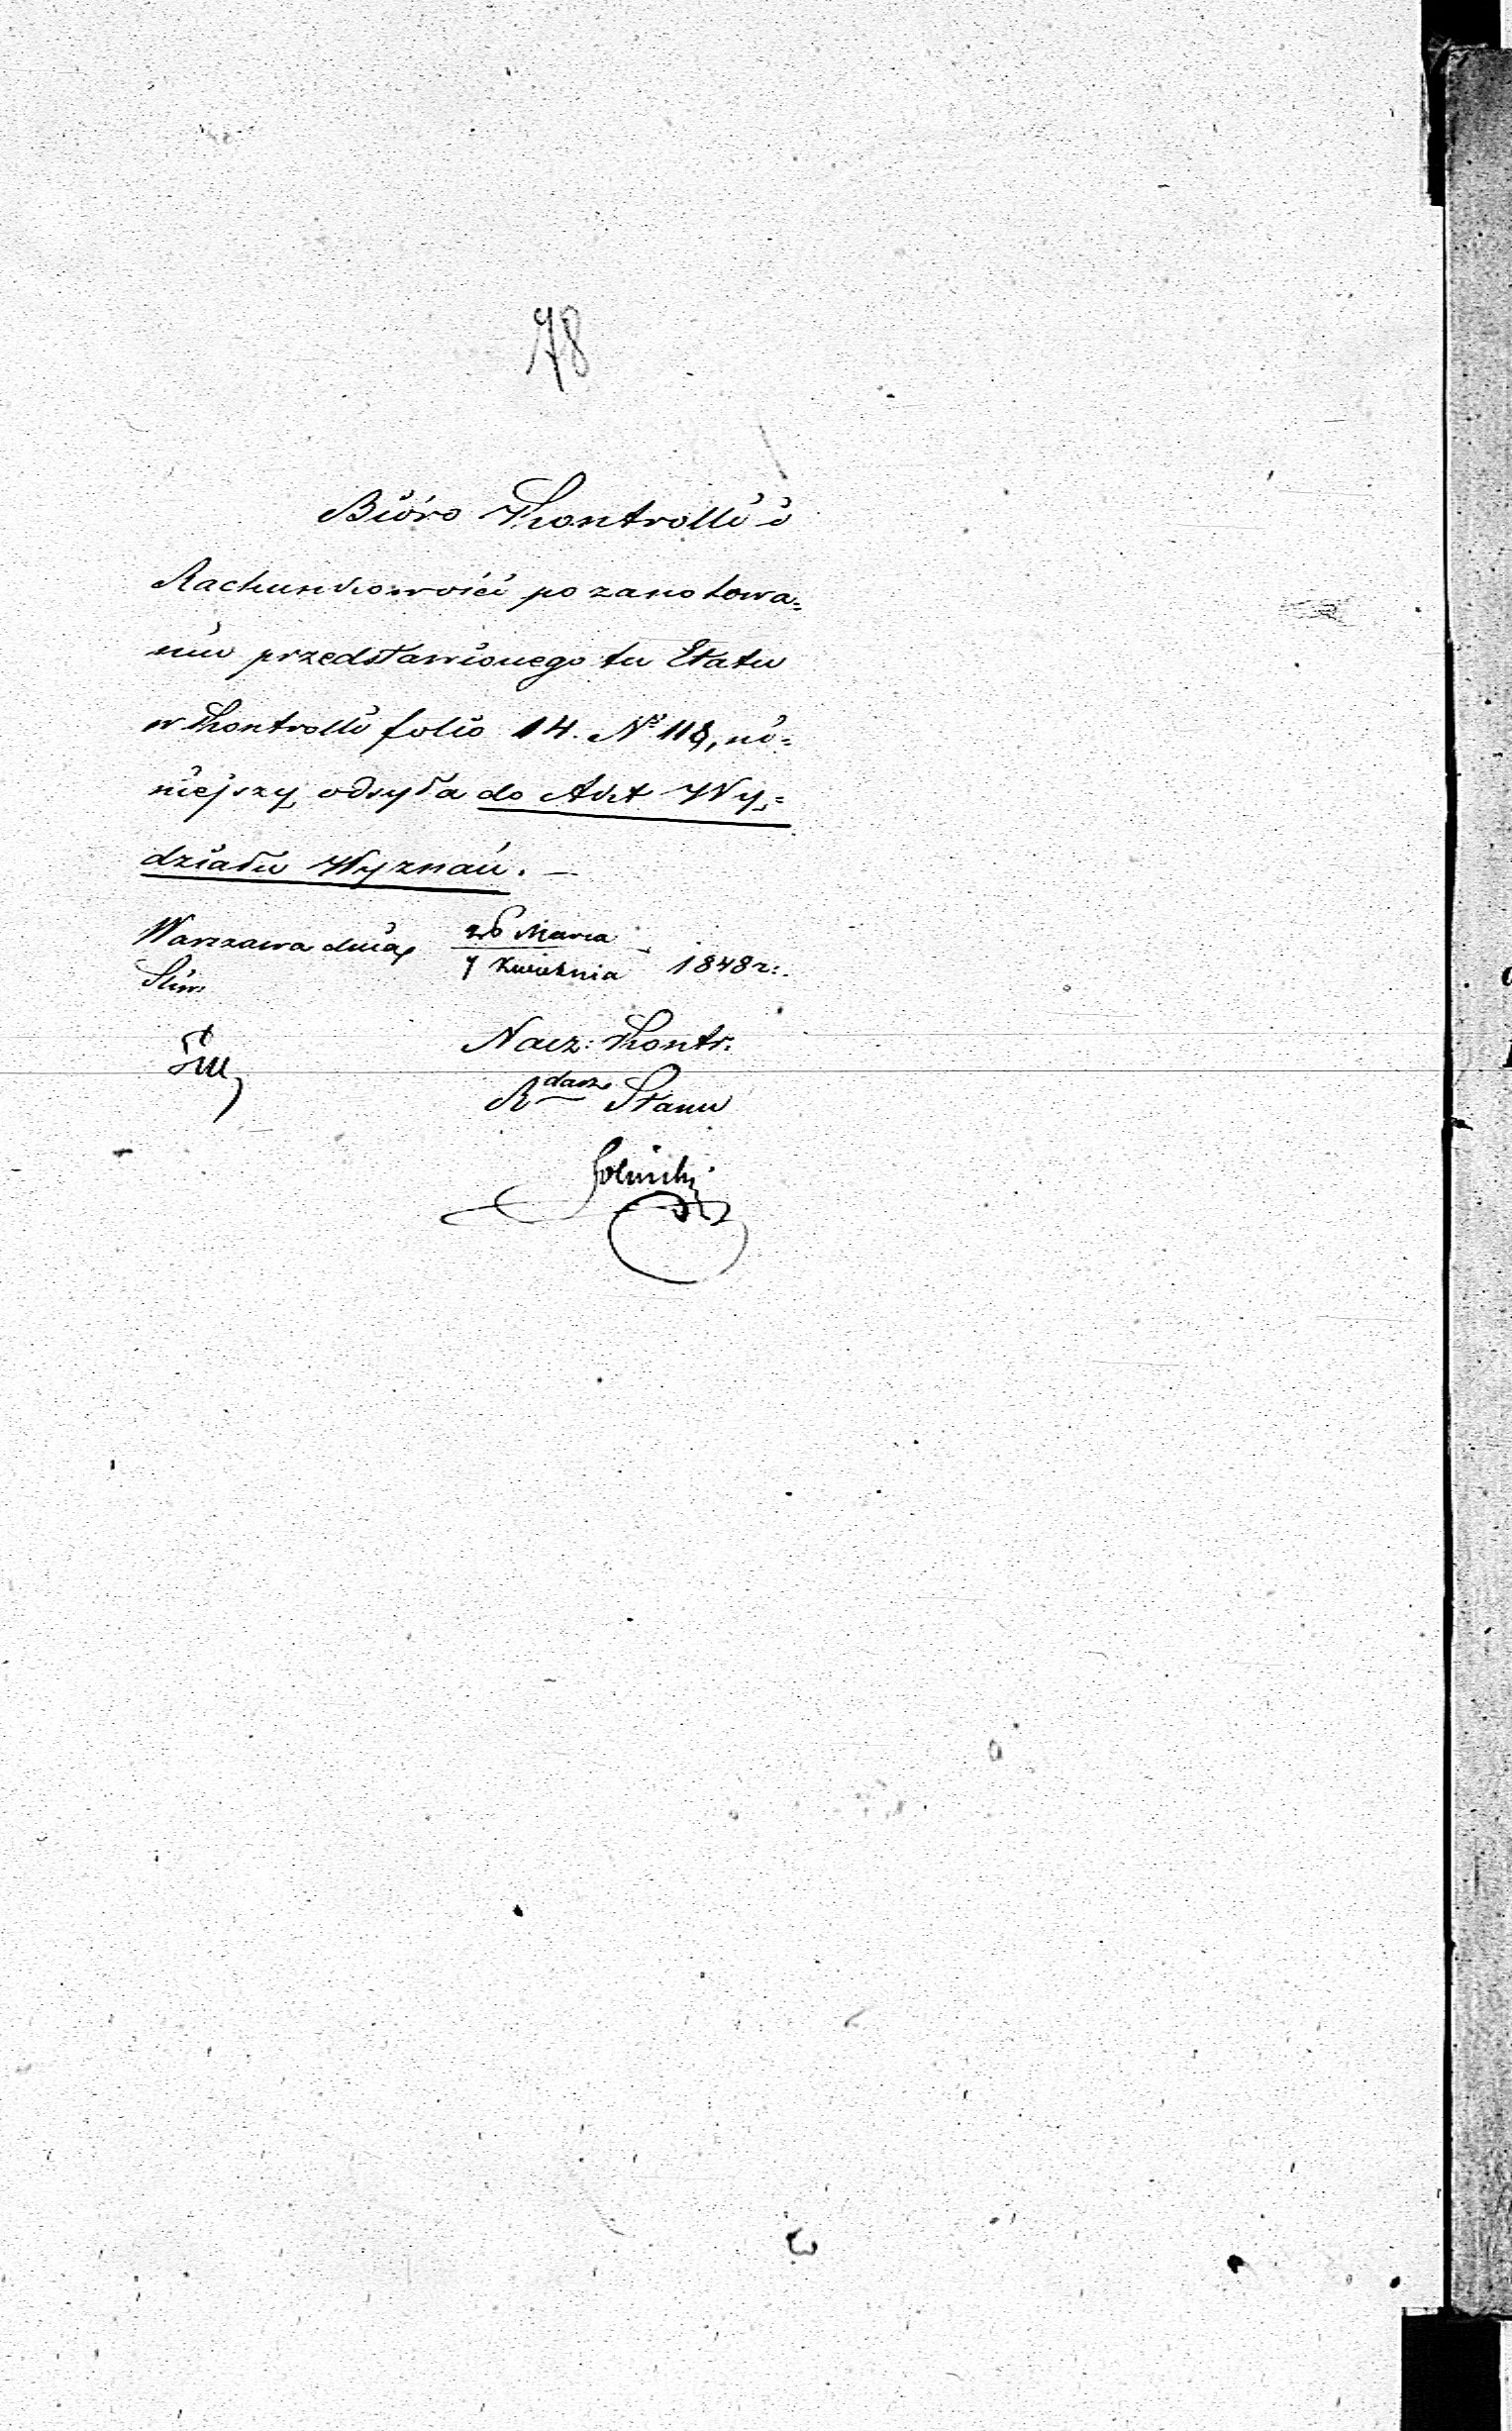 78
Biόro Kontrolli i
Rachunkowości po zanotowa=
niu przedstawionego tu Etatu
w Kontrolli folio 14. No 118, ni=
niejszy odsyła do Akt Wy=
działu Wyznań. —
Warszawa dnia 26 Marca
7 Kwietnia 1848 r:.
Nacz: Kontr:
Rdca Stanu